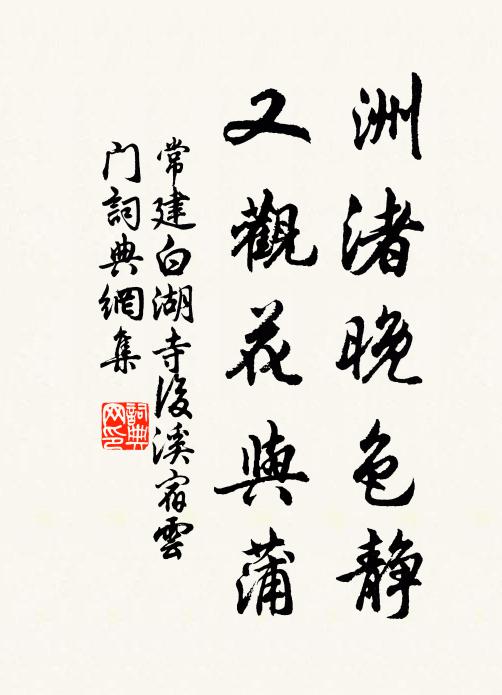 洲渚晚色静
又觀花與蒲
常建白湖寺後溪宿雲
門詞典網集
詞典
网印